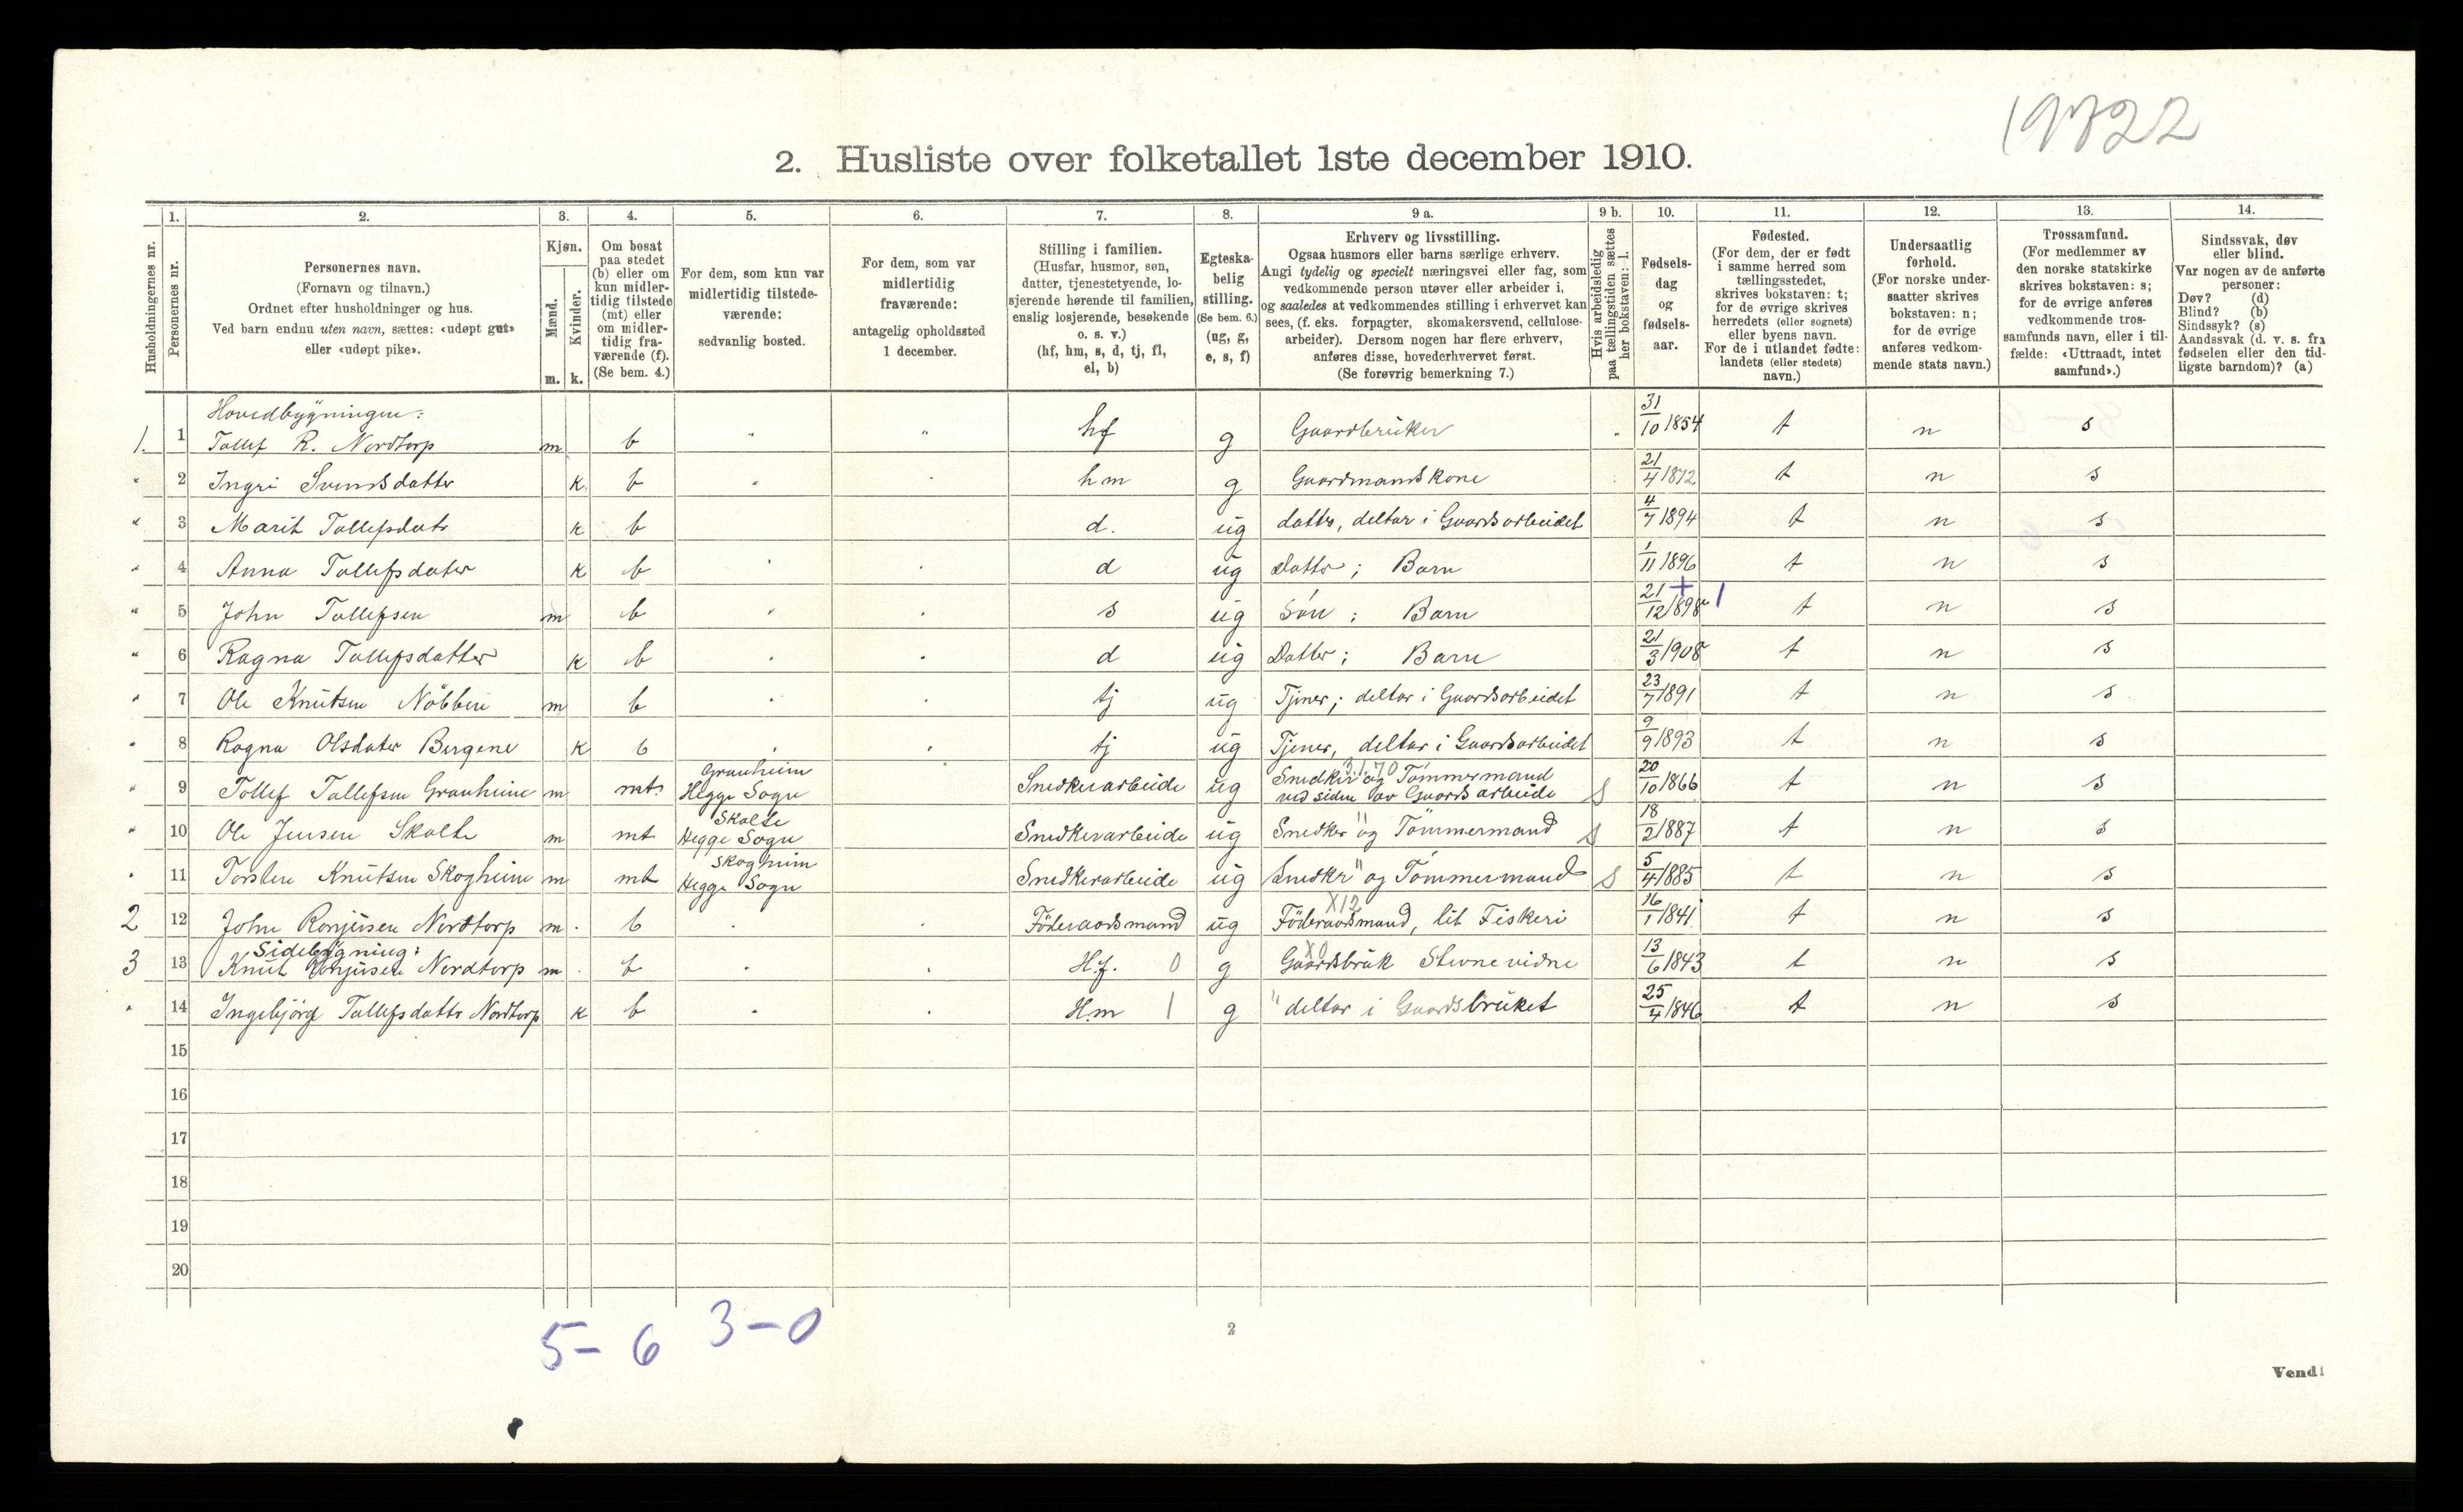 19722
2. Husliste over folketallet 1ste december 1910.
Husholdningernes nr.
1. Personernes nr.
2. Personernes navn. (Fornavn og tilnavn.) Ordnet efter husholdninger og hus. Ved barn endnu uten navn, sættes: «udøpt gut» eller «udøpt pike».
3. Kjøn. Mænd. m. Kvinder. k.
4. Om bosat paa stedet (b) eller om kun midlertidig tilstede (mt) eller om midlertidig fraværende (f). (Se bem. 4.)
5. For dem, som kun var midlertidig tilstedeværende: sedvanlig bosted.
6. For dem, som var midlertidig fraværende: antagelig opholdssted 1 december.
7. Stilling i familien. (Husfar, husmor, søn, datter, tjenestetyende, losjerende hørende til familien, enslig losjerende, besøkende o. s. v.) (hf, hm, s, d, tj, fl, el, b)
8. Egteskabelig stilling. (Se bem. 6.) (ug, g, e, s, f)
9 a. Erhverv og livsstilling. Ogsaa husmors eller barns særlige erhverv. Angi tydelig og specielt næringsvei eller fag, som vedkommende person utøver eller arbeider i, og saaledes at vedkommendes stilling i erhvervet kan sees, (f. eks. forpagter, skomakersvend, cellulosearbeider). Dersom nogen har flere erhverv, anføres disse, hovederhvervet først. (Se forøvrig bemerkning 7.)
9 b. Hvis arbeidsledig paa tællingstiden sættes her bokstaven: l.
10. Fødselsdag og fødselsaar.
11. Fødested. (For dem, der er født i samme herred som tællingsstedet, skrives bokstaven: t; for de øvrige skrives herredets (eller sognets) eller byens navn. For de i utlandet fødte: landets (eller stedets) navn.)
12. Undersaatlig forhold. (For norske undersaatter skrives bokstaven: n; for de øvrige anføres vedkommende stats navn.)
13. Trossamfund. (For medlemmer av den norske statskirke skrives bokstaven: s; for de øvrige anføres vedkommende trossamfunds navn, eller i tilfælde: «Uttraadt, intet samfund».)
14. Sindssvak, døv eller blind. Var nogen av de anførte personer: Døv? (d) Blind? (b) Sindssyk? (s) Aandssvak (d. v. s. fra fødselen eller den tidligste barndom)? (a)
Hovedbygningen:
1. 1 Tollef R. Nordtorp m b " " hf g Gaardbruker 31/10 1854 t n s
" 2 Ingri Svendsdatter k b " hm g Gaardmandskone 21/4 1872 t n s
" 3 Marit Tollefsdatr k b d. ug datter, deltar i Gaardsarbeidet 4/7 1894 t n s
" 4 Anna Tollefsdater k b d ug Datter; Barn 1/11 1896 t n s
" 5 John Tollefsen m b s ug søn; Barn 21/12 1898 + 1 t n s
" 6 Ragna Tollefsdatter k b d ug Datter; Barn 21/3 1908 t n s
" 7 Ole Knutsen Nöbben m b tj ug Tjener; deltar i Gaardsarbeidet 23/7 1891 t n s
" 8 Ragna Olsdater Bergene k b tj ug Tjener, deltar i Gaardsarbeidet 9/9 1893 t n s
" 9 Tollef Tollefsen Granheim m mt. Granheim Hegge Sogn Snedkerarbeide ug Snedker og Tömmermand ved siden av Gaardsarbeide s 20/10 1866 t n s
" 10 Ole Jensen Skolte m mt Skolte Hegge Sogn Snedkerarbeide ug Snedker og Tömmermand s 18/2 1887 t n s
" 11 Torsten Knutsen Skogheim m mt Skogheim Hegge Sogn Snedkerarbeide ug Snedker og Tömmermand s 5/4 1885 t n s
2 12 John Ronjusen Nordtorp m b Föderaadsmand ug Föderaadsmand, lit Fiskeri X12 16/1 1841 t n s
Sidebygning:
3 13 Knut Ronjusen Nordtorp m b H.f. 0 g Gaardsbruk Stevnevidne X0 13/6 1843 t n s
" 14 Ingebjörg Tollefsdatter Nordtorp k b H.m 1 g " deltar i Gaardsbruket 25/4 1846 t n s
15
16
17
18
19
20
5 - 6 3 - 0
2
Vend!